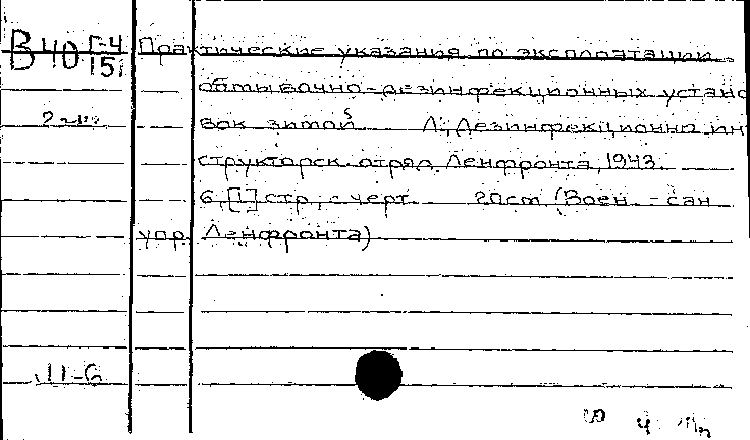 В 40 Г-4/151 Практические указания по эксплоатации
обмывочно-дезинфекционных устано
вок зимой. Л., Дезинфекционно-ин
структорск. отряд Ленфронта, 1943.
6, [1] стр., с черт. 20см (Воен.-сан
упр. Ленфронта)
11-6